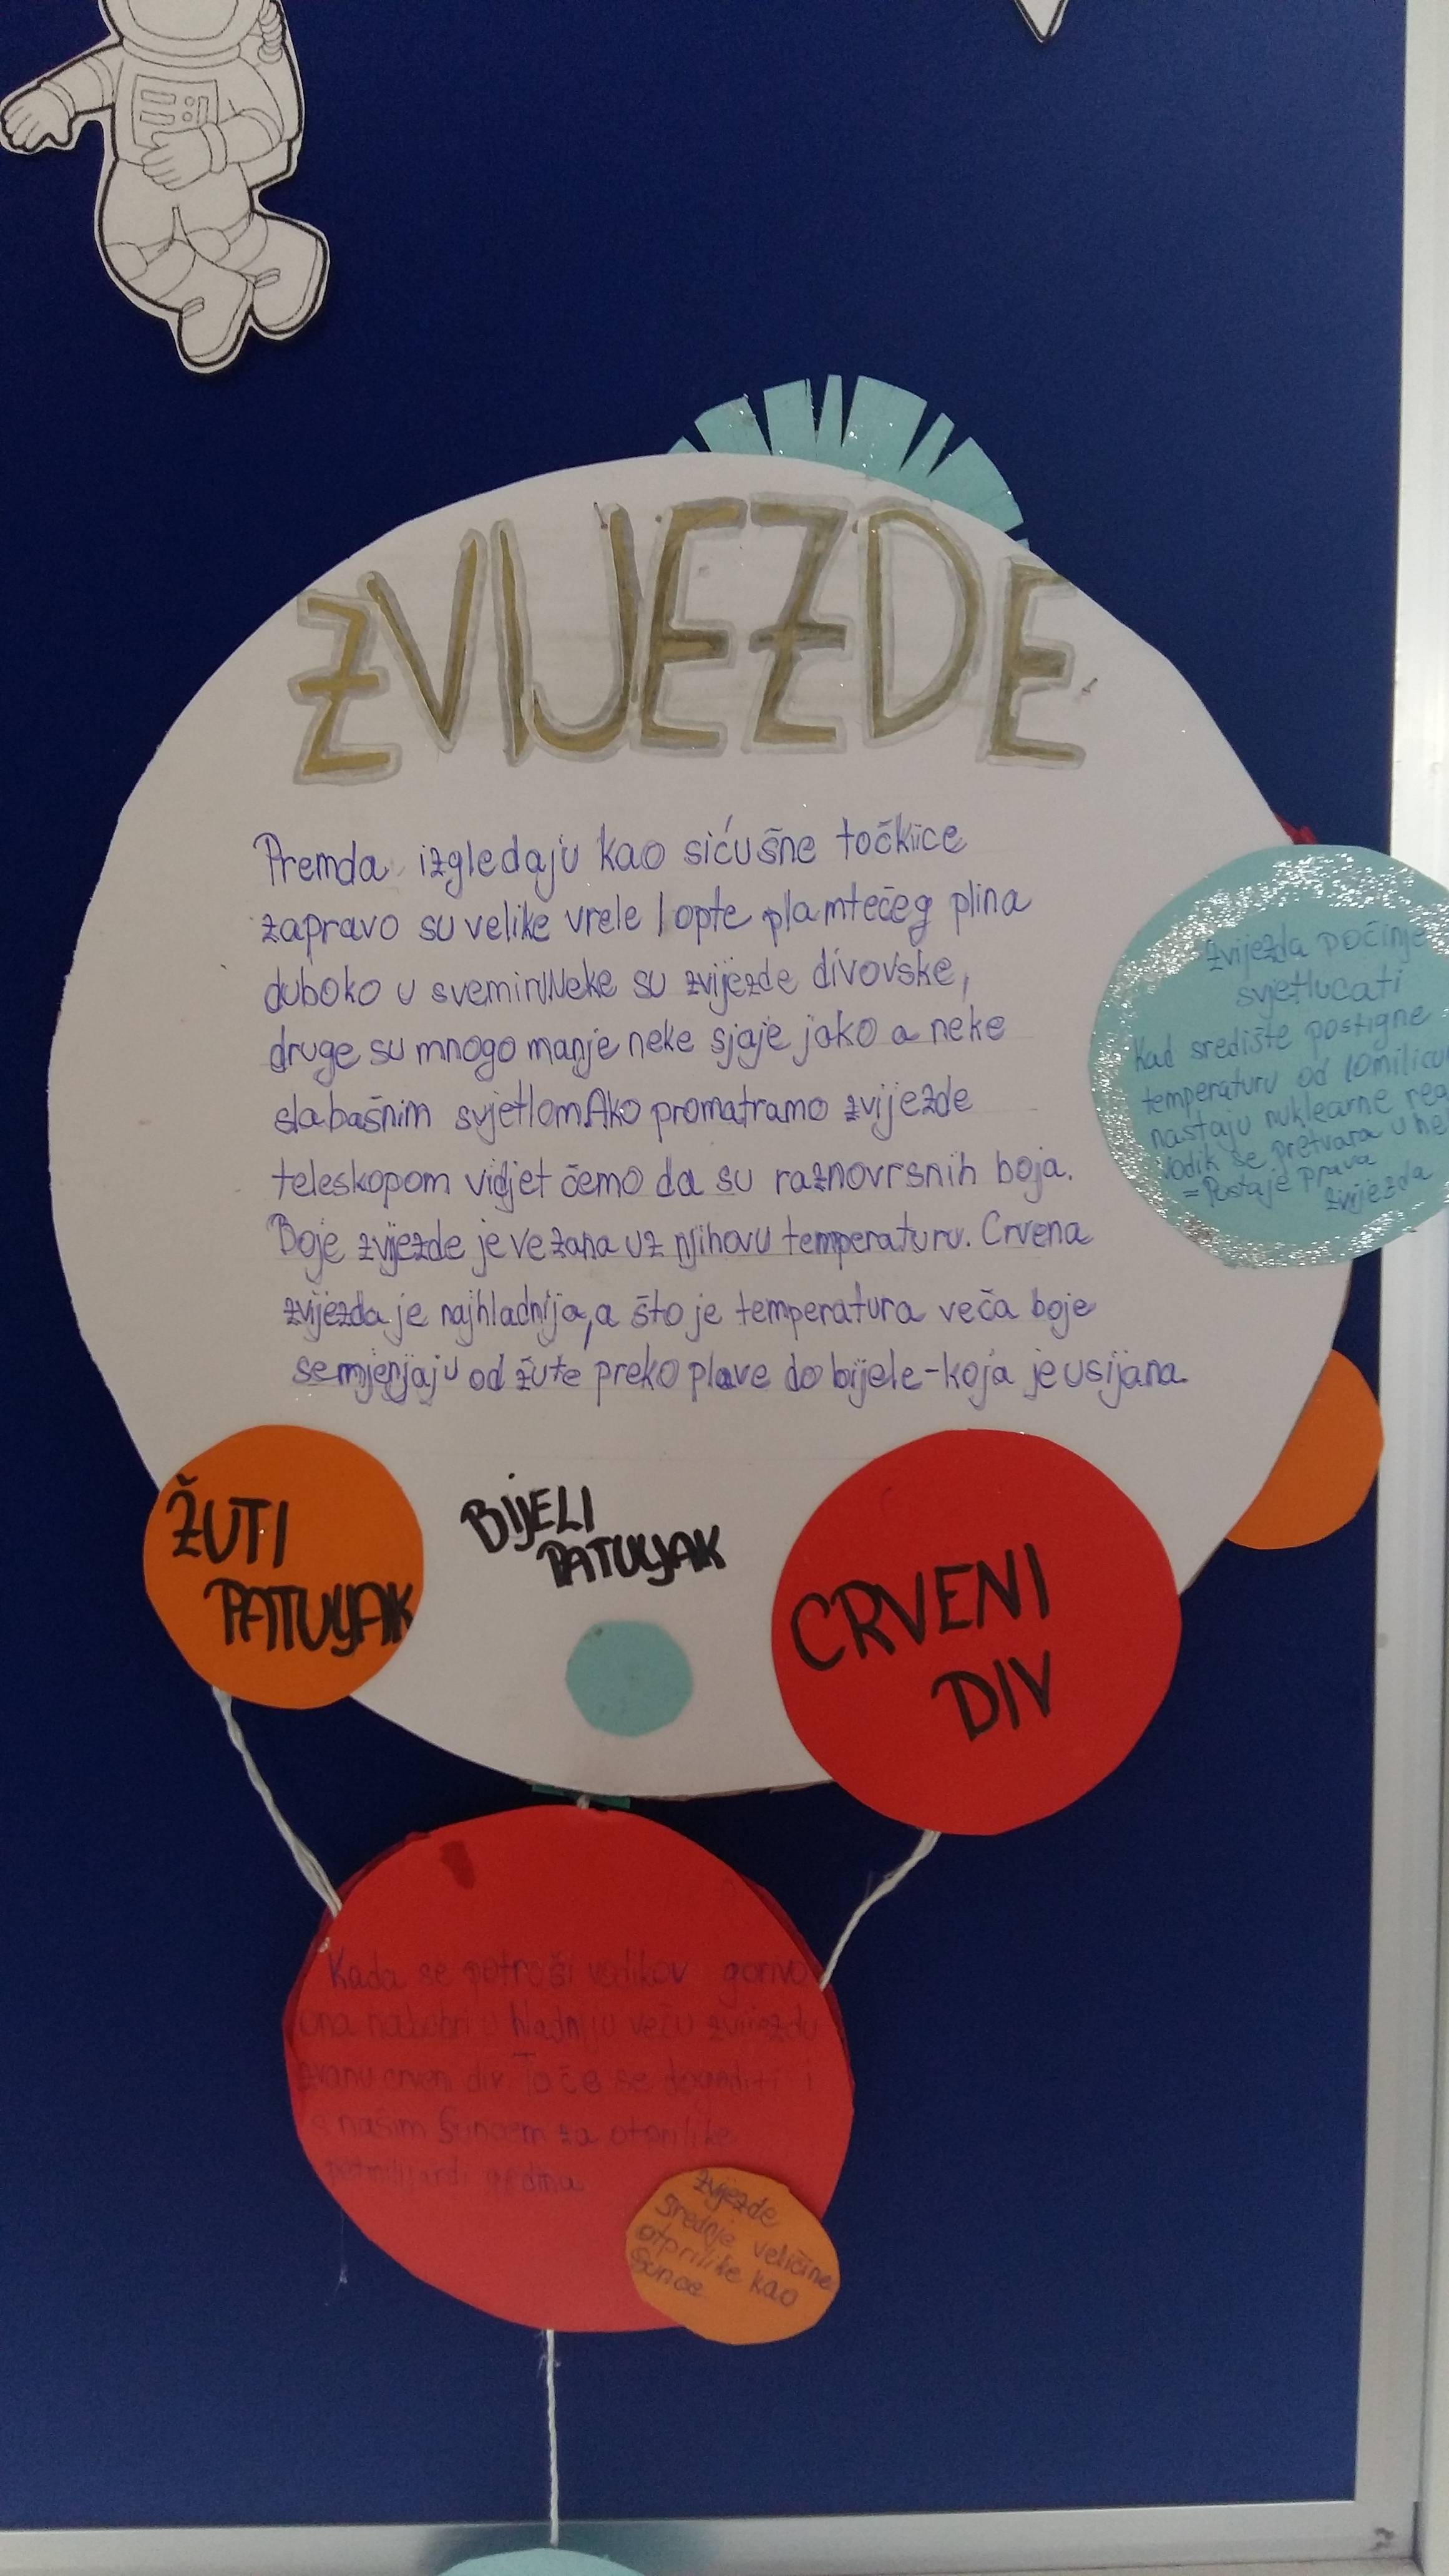 ZVIJEZDE
Premda izgledaju kao sićušne točkice
zapravo su velike vrele lopte plamtečeg plina
duboko u svemiru. Neke su zvijezde divovske,
druge su mnogo manje neke sjaje jako a neke
slabašnim svjetlom. Ako promatramo zvijezde
teleskopom vidjet čemo da su raznovrsnih boja.
Boje zvijezde je vezana uz njihovu temperaturu. Crvena
zvijezda je najhladnija, a što je temperatura veča boje
se mjenjaju od žute preko plave do bijele-koja je usijana.
zvijezda počinje
svjetlucati
Kad središte postigne
temperaturu od 10
nastaju nuklearne
vodik se pretvara u
=Postaje prava
zvijezda
ŽUTI
PATULJAK
BIJELI
PATULJAK
CRVENI
DIV
Kada se potroši vodikov gorivo
ona nabubri u hladniju veču zvijezdu
zvanu crveni div. To če se dogoditi i
s našim Suncem za otprilike
godina
Zvijezde
srednje veličine
otprilike kao
Sunce